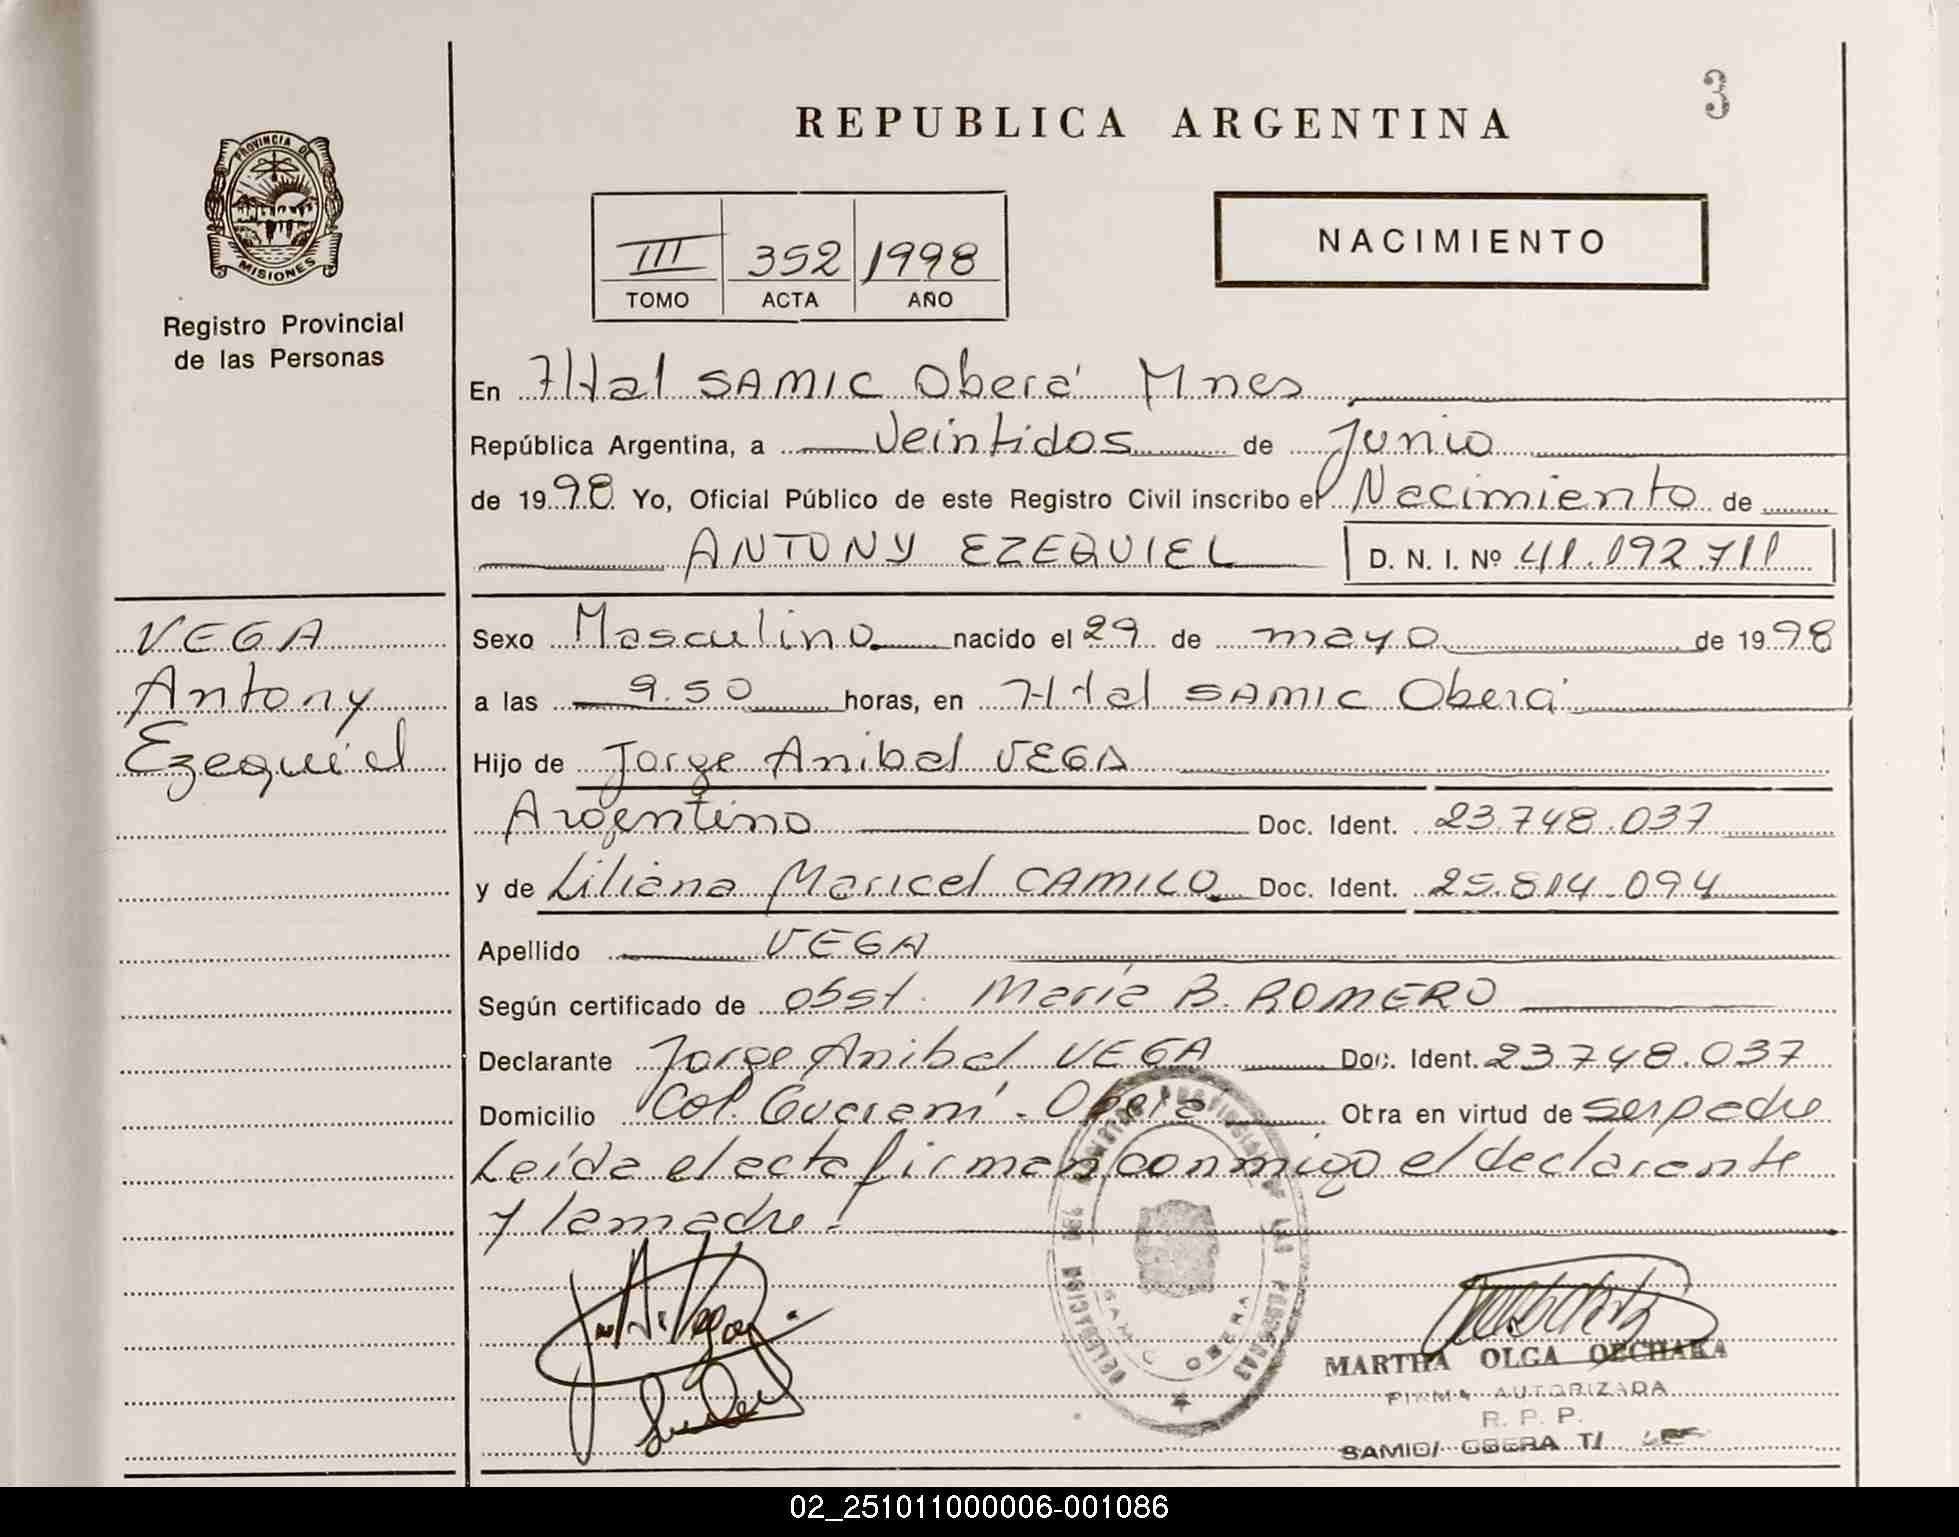 3
REPUBLICA ARGENTINA
PROVINCIA DE
MISIONES
Registro Provincial
de las Personas
III 352 1998
TOMO ACTA AÑO
NACIMIENTO
En Htal SAMIC Oberá Mnes
República Argentina, a Veintidos de Junio
de 1998 Yo, Oficial Público de este Registro Civil inscribo el Nacimiento de
ANTONY EZEQUIEL D. N. I. Nº 41.192.711
VEGA
Antony
Ezequiel
Sexo Masculino nacido el 29 de mayo de 1998
a las 9.50 horas, en Htal SAMIC Oberá
Hijo de Jorge Anibal VEGA
Argentino Doc. Ident. 23.748.037
y de Liliana Maricel CAMILO Doc. Ident. 25.814.094
Apellido VEGA
Según certificado de obst. María B. ROMERO
Declarante Jorge Anibal VEGA Doc. Ident. 23.748.037
Domicilio Col. Guaraní - Oberá Obra en virtud de ser padre
Leída el acta firman conmigo el declarante
y la madre.
MARTHA OLGA OECHAKA
FIRMA AUTORIZADA
R. P. P.
SAMIC/ OBERA T/
02_251011000006-001086